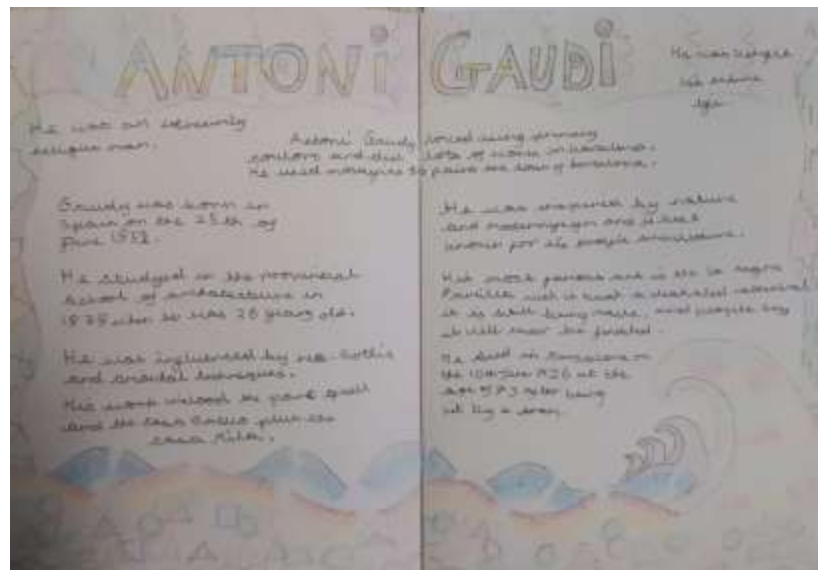 ANTONI GAUDI
He was an extremely
religious man.
Antoni Gaudy loved using primary
colours and did lots of work in barcelona.
He used mosaics to
Gaudy was born in
Spain on the 25th of
June 1852.
He studyed in the provincial
school of architecture in
1878 when he was 26 years old.
He was influenced by neo-Gothic
and oriental techniques.
His work included the park guell
and the casa Batllo plus the
casa Milà.
He was
his
He was inspired by nature
and modernism and it is
known for its
His most famous art is the la sagra
Familia
it is still being made, and people say
it will never be finished.
He died in Barcelona on
the 10th June 1926 at the
age of 73 after being
hit by a tram